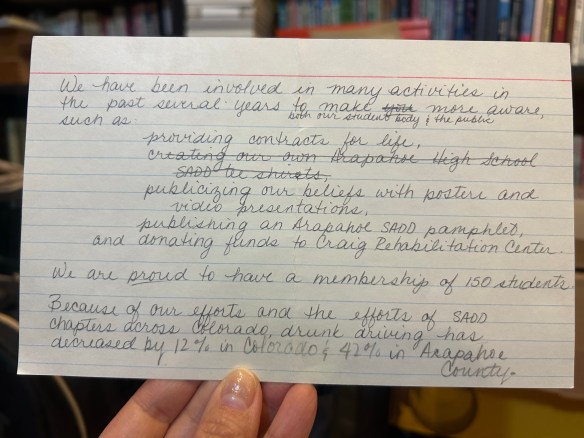 We have been involved in many activities in
the past several years to make you more aware,
both our student body & the public
such as:
providing contracts for life,
creating our own Arapahoe High School
SADD tee shirts,
publicizing our beliefs with posters and
video presentations,
publishing an Arapahoe SADD pamphlet,
and donating funds to Craig Rehabilitation Center.
We are proud to have a membership of 150 students.
Because of our efforts and the efforts of SADD
chapters across Colorado, drunk driving has
decreased by 12% in Colorado & 42% in Arapahoe
County.